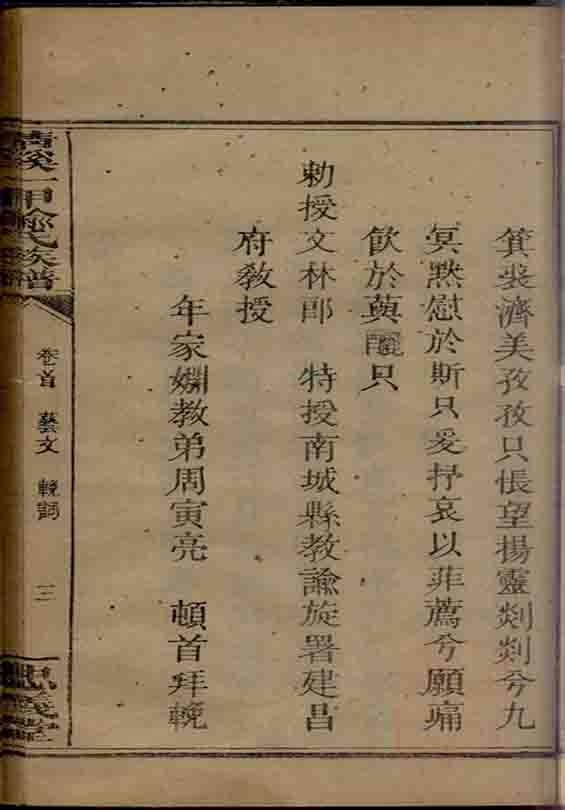 箕裘濟美孜孜只悵望揚靈剡剡兮九
冥黙慰於斯只爰抒哀以菲薦兮願痛
飲於萸醹只
勅授文林郎 特授南城縣教諭旋署建昌
府教授
年家嫺教弟周寅亮 頓首拜輓
溪一甲俞氏族譜
卷首 藝文 輓詞 三